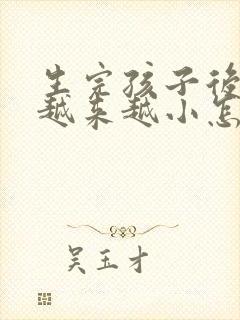 生完孩子後
越來越小怎
吴玉才